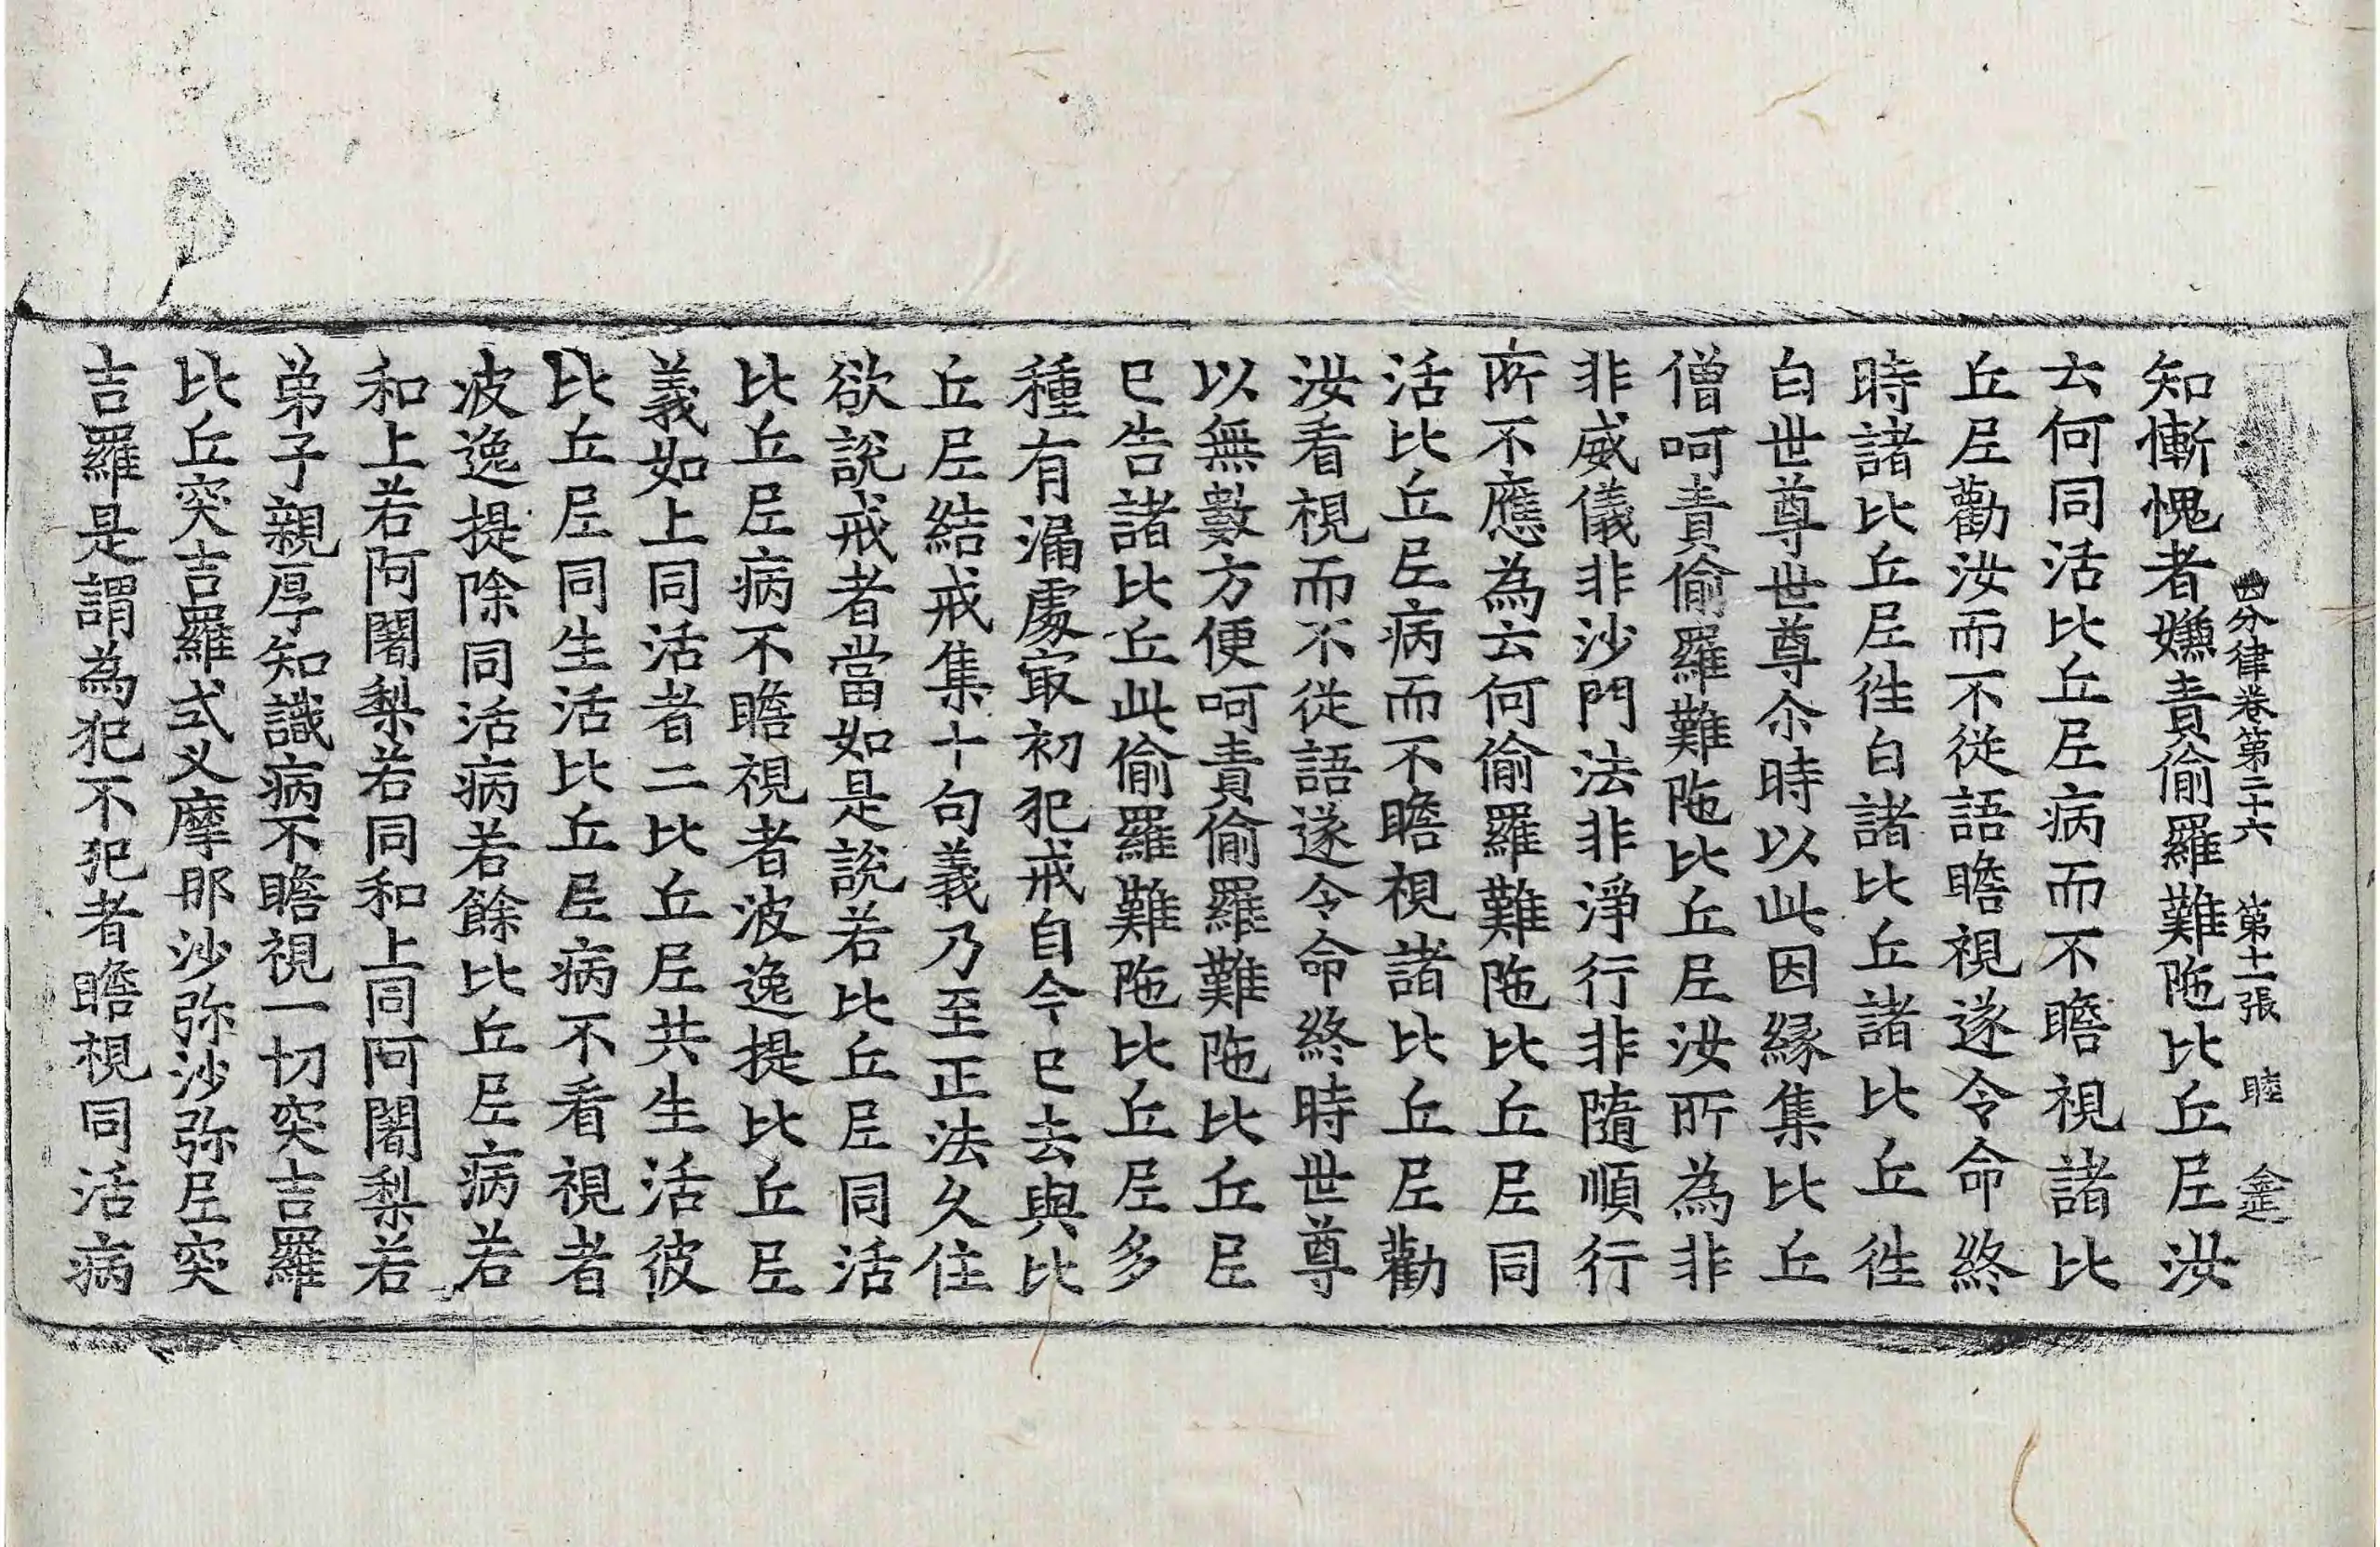 四分律卷第二十六 第十一張 睦
知慚愧者嫌責偷羅難陁比丘尼汝
云何同活比丘尼病而不瞻視諸比
丘尼勸汝而不從語瞻視遂令命終
時諸比丘尼徃白諸比丘諸比丘徃
白世尊世尊尒時以此因縁集比丘
僧呵責偷羅難陁比丘尼汝所為非
非威儀非沙門法非淨行非隨順行
所不應為云何偷羅難陁比丘尼同
活比丘尼病而不瞻視諸比丘尼勸
汝看視而不從語遂令命終時世尊
以無數方便呵責偷羅難陁比丘尼
已告諸比丘此偷羅難陁比丘尼多
種有漏處㝡初犯戒自今已去與比
丘尼結戒集十句義乃至正法久住
欲說戒者當如是說若比丘尼同活
比丘尼病不瞻視者波逸提比丘尼
義如上同活者二比丘尼共生活彼
比丘尼同生活比丘尼病不看視者
波逸提除同活病若餘比丘尼病若
和上若阿闍梨若同和上同阿闍梨若
弟子親厚知識病不瞻視一切突吉羅
比丘突吉羅式叉摩那沙弥沙弥尼突
吉羅是謂為犯不犯者瞻視同活病